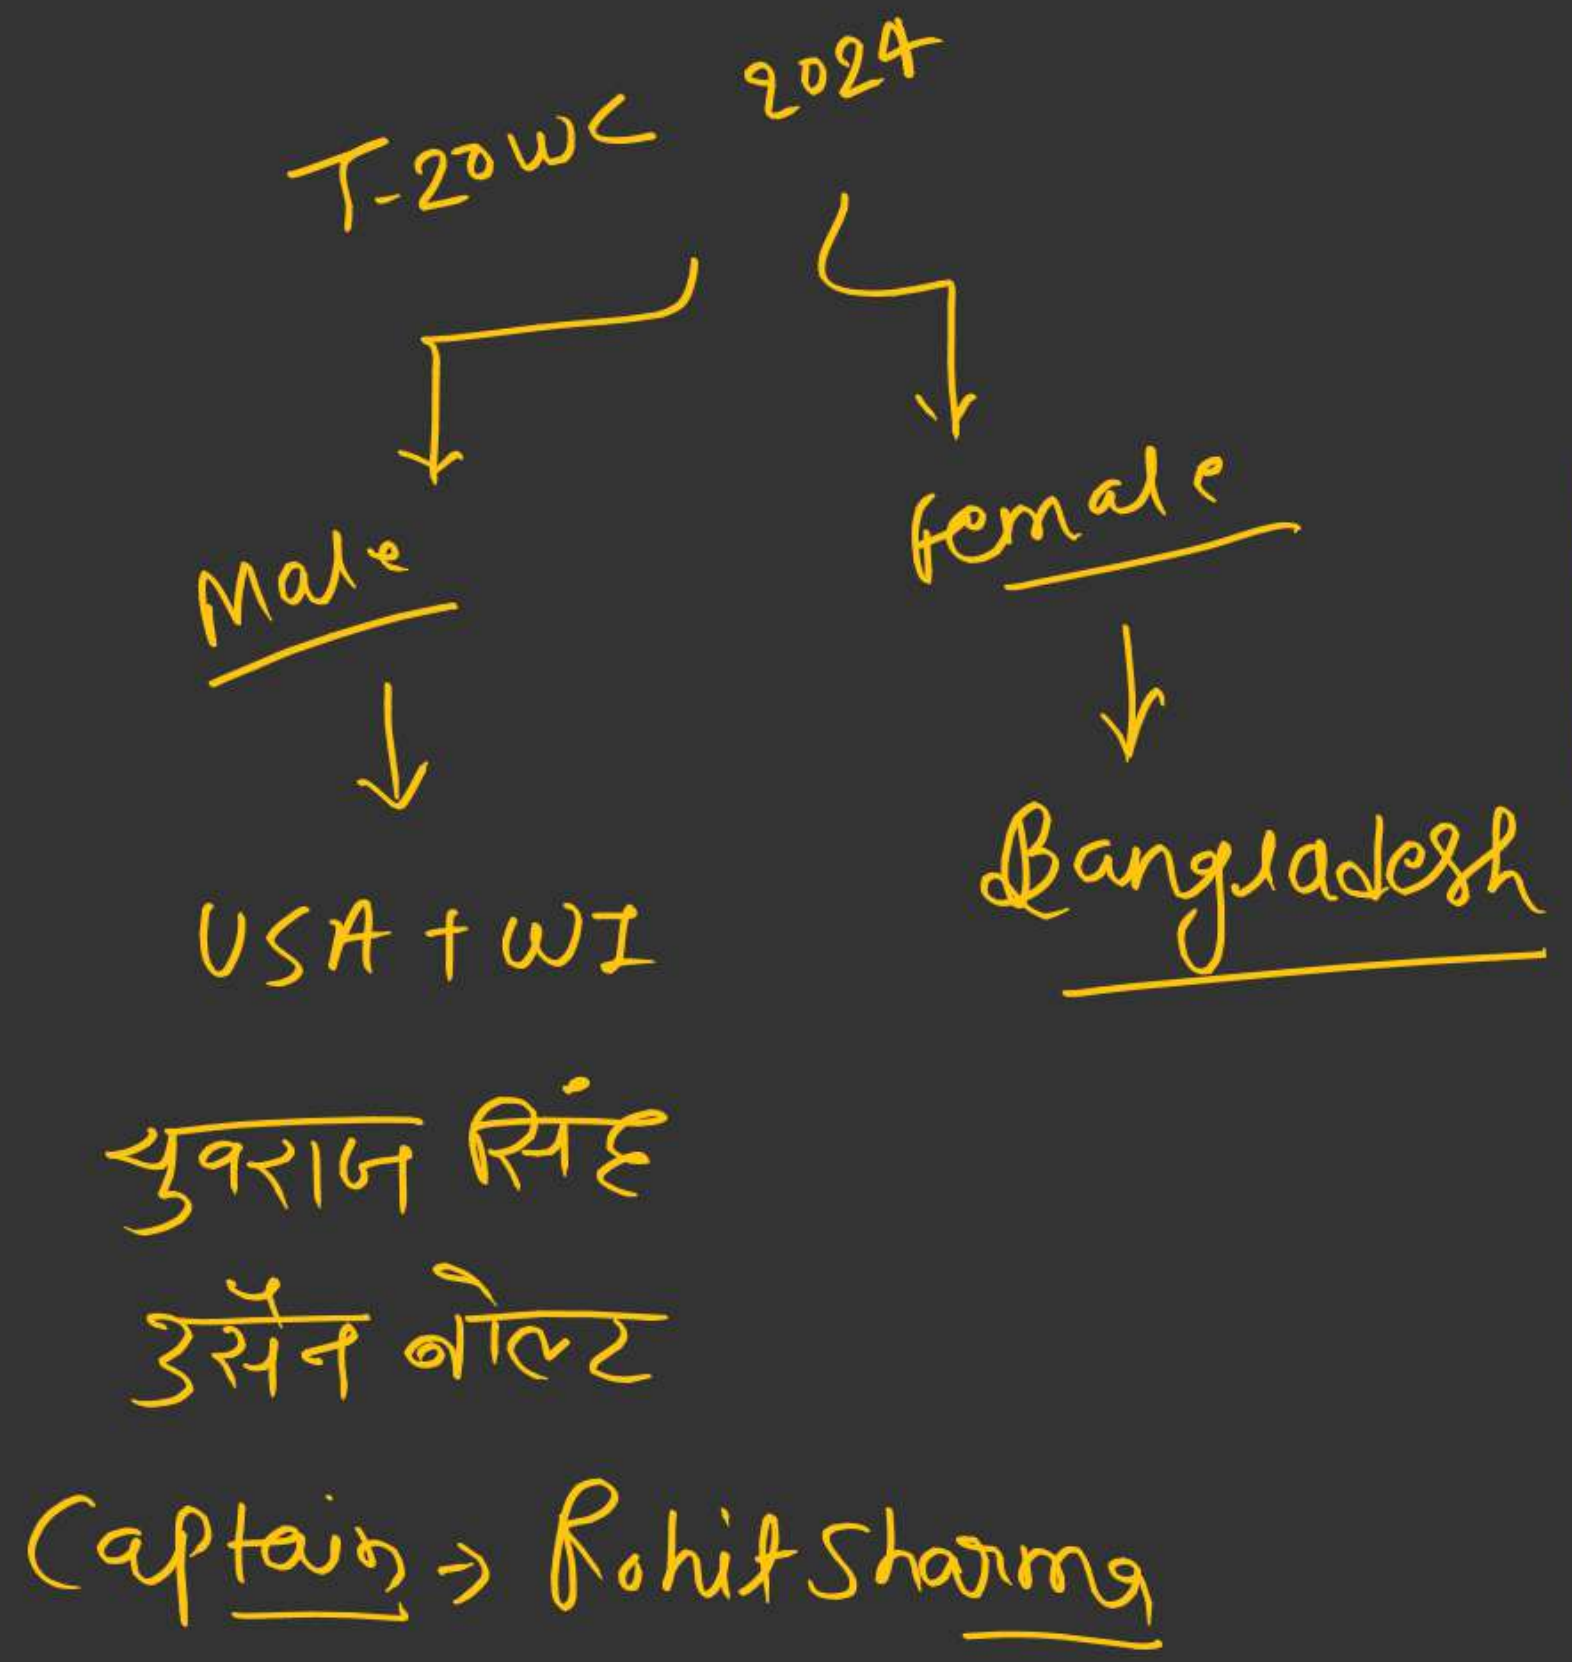 T-20 WC 2024
Male
Female
USA + WI
Bangladesh
युवराज सिंह
उसैन बोल्ट
Captain → Rohit Sharma